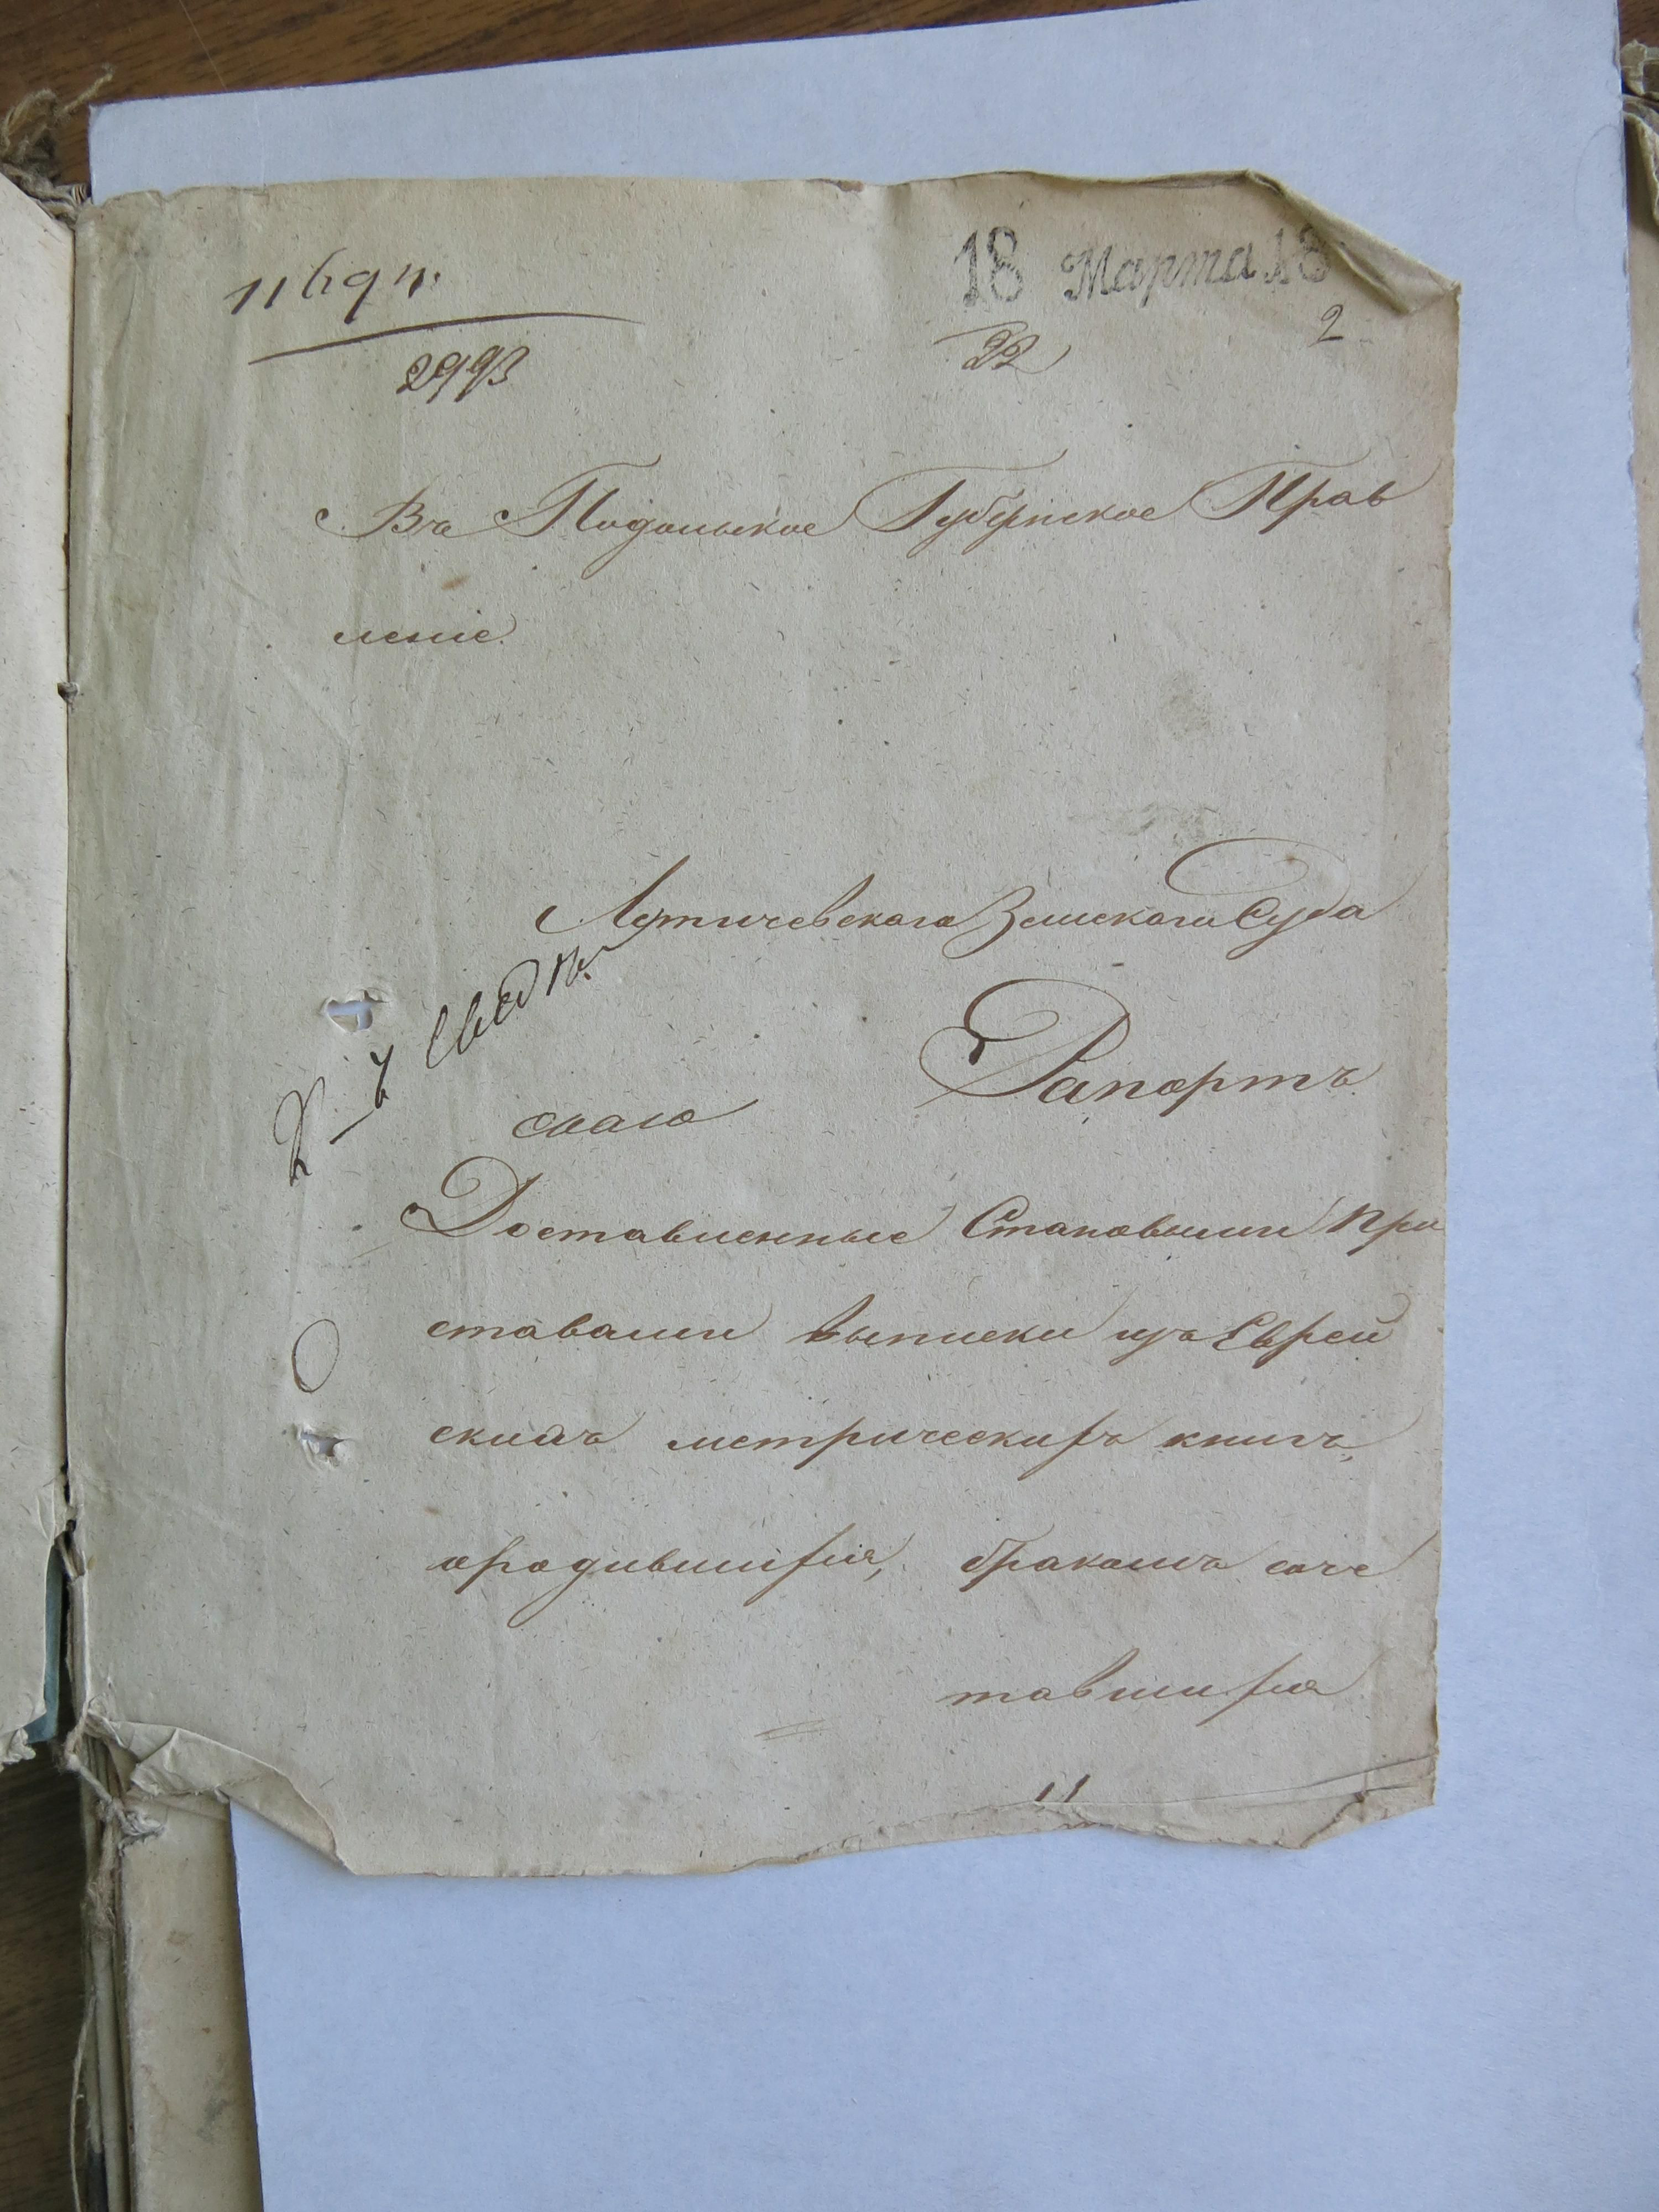 18 Марта 18
2993
22
2
Въ Подольское Губернское Прав
леніе.
Летичевскаго Земскаго Суда
Рапортъ
Доставленные Становыми При
ставами выписки изъ Еврей
скихъ метрическихъ книгъ,
ородившихся, бракомъ соче
тавшихся